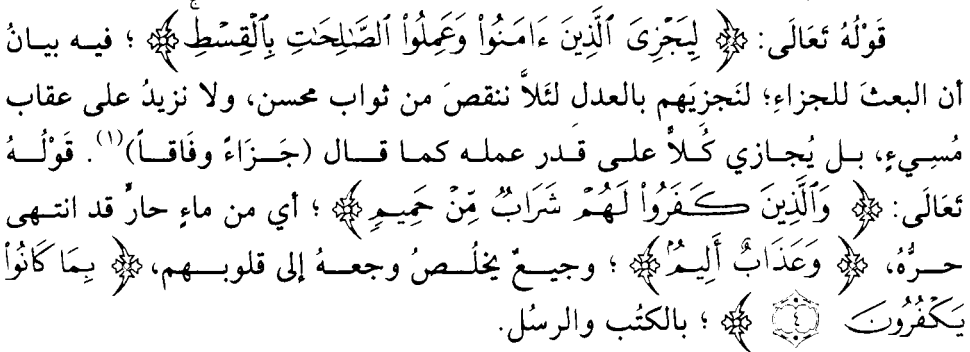 قَوْلُهُ تَعَالَى: ﴿ لِيَجْزِىَ ٱلَّذِينَ ءَامَنُواْ وَعَمِلُواْ ٱلصَّٰلِحَٰتِ بِٱلْقِسْطِۚ ﴾ ؛ فيه بيانُ
أن البعثَ للجزاءِ؛ لنَجزِيَهم بالعدل لئَلاَّ ننقصَ من ثواب محسن، ولا نزيدُ على عقاب
مُسِيءٍ، بل يُجازي كُلاًّ على قَدر عمله كما قال (جَزَاءً وفَاقاً)(١). قَوْلُهُ
تَعَالَى: ﴿ وَٱلَّذِينَ كَفَرُواْ لَهُمْ شَرَابٌ مِّنْ حَمِيمٍ ﴾ ؛ أي من ماءٍ حارٍّ قد انتهى
حرُّهُ، ﴿ وَعَذَابٌ أَلِيمٌۢ ﴾ ؛ وجيعٌ يخلُصُ وجعهُ إلى قلوبهم، ﴿ بِمَا كَانُواْ
يَكْفُرُونَ ٤ ﴾ ؛ بالكتُب والرسُل.